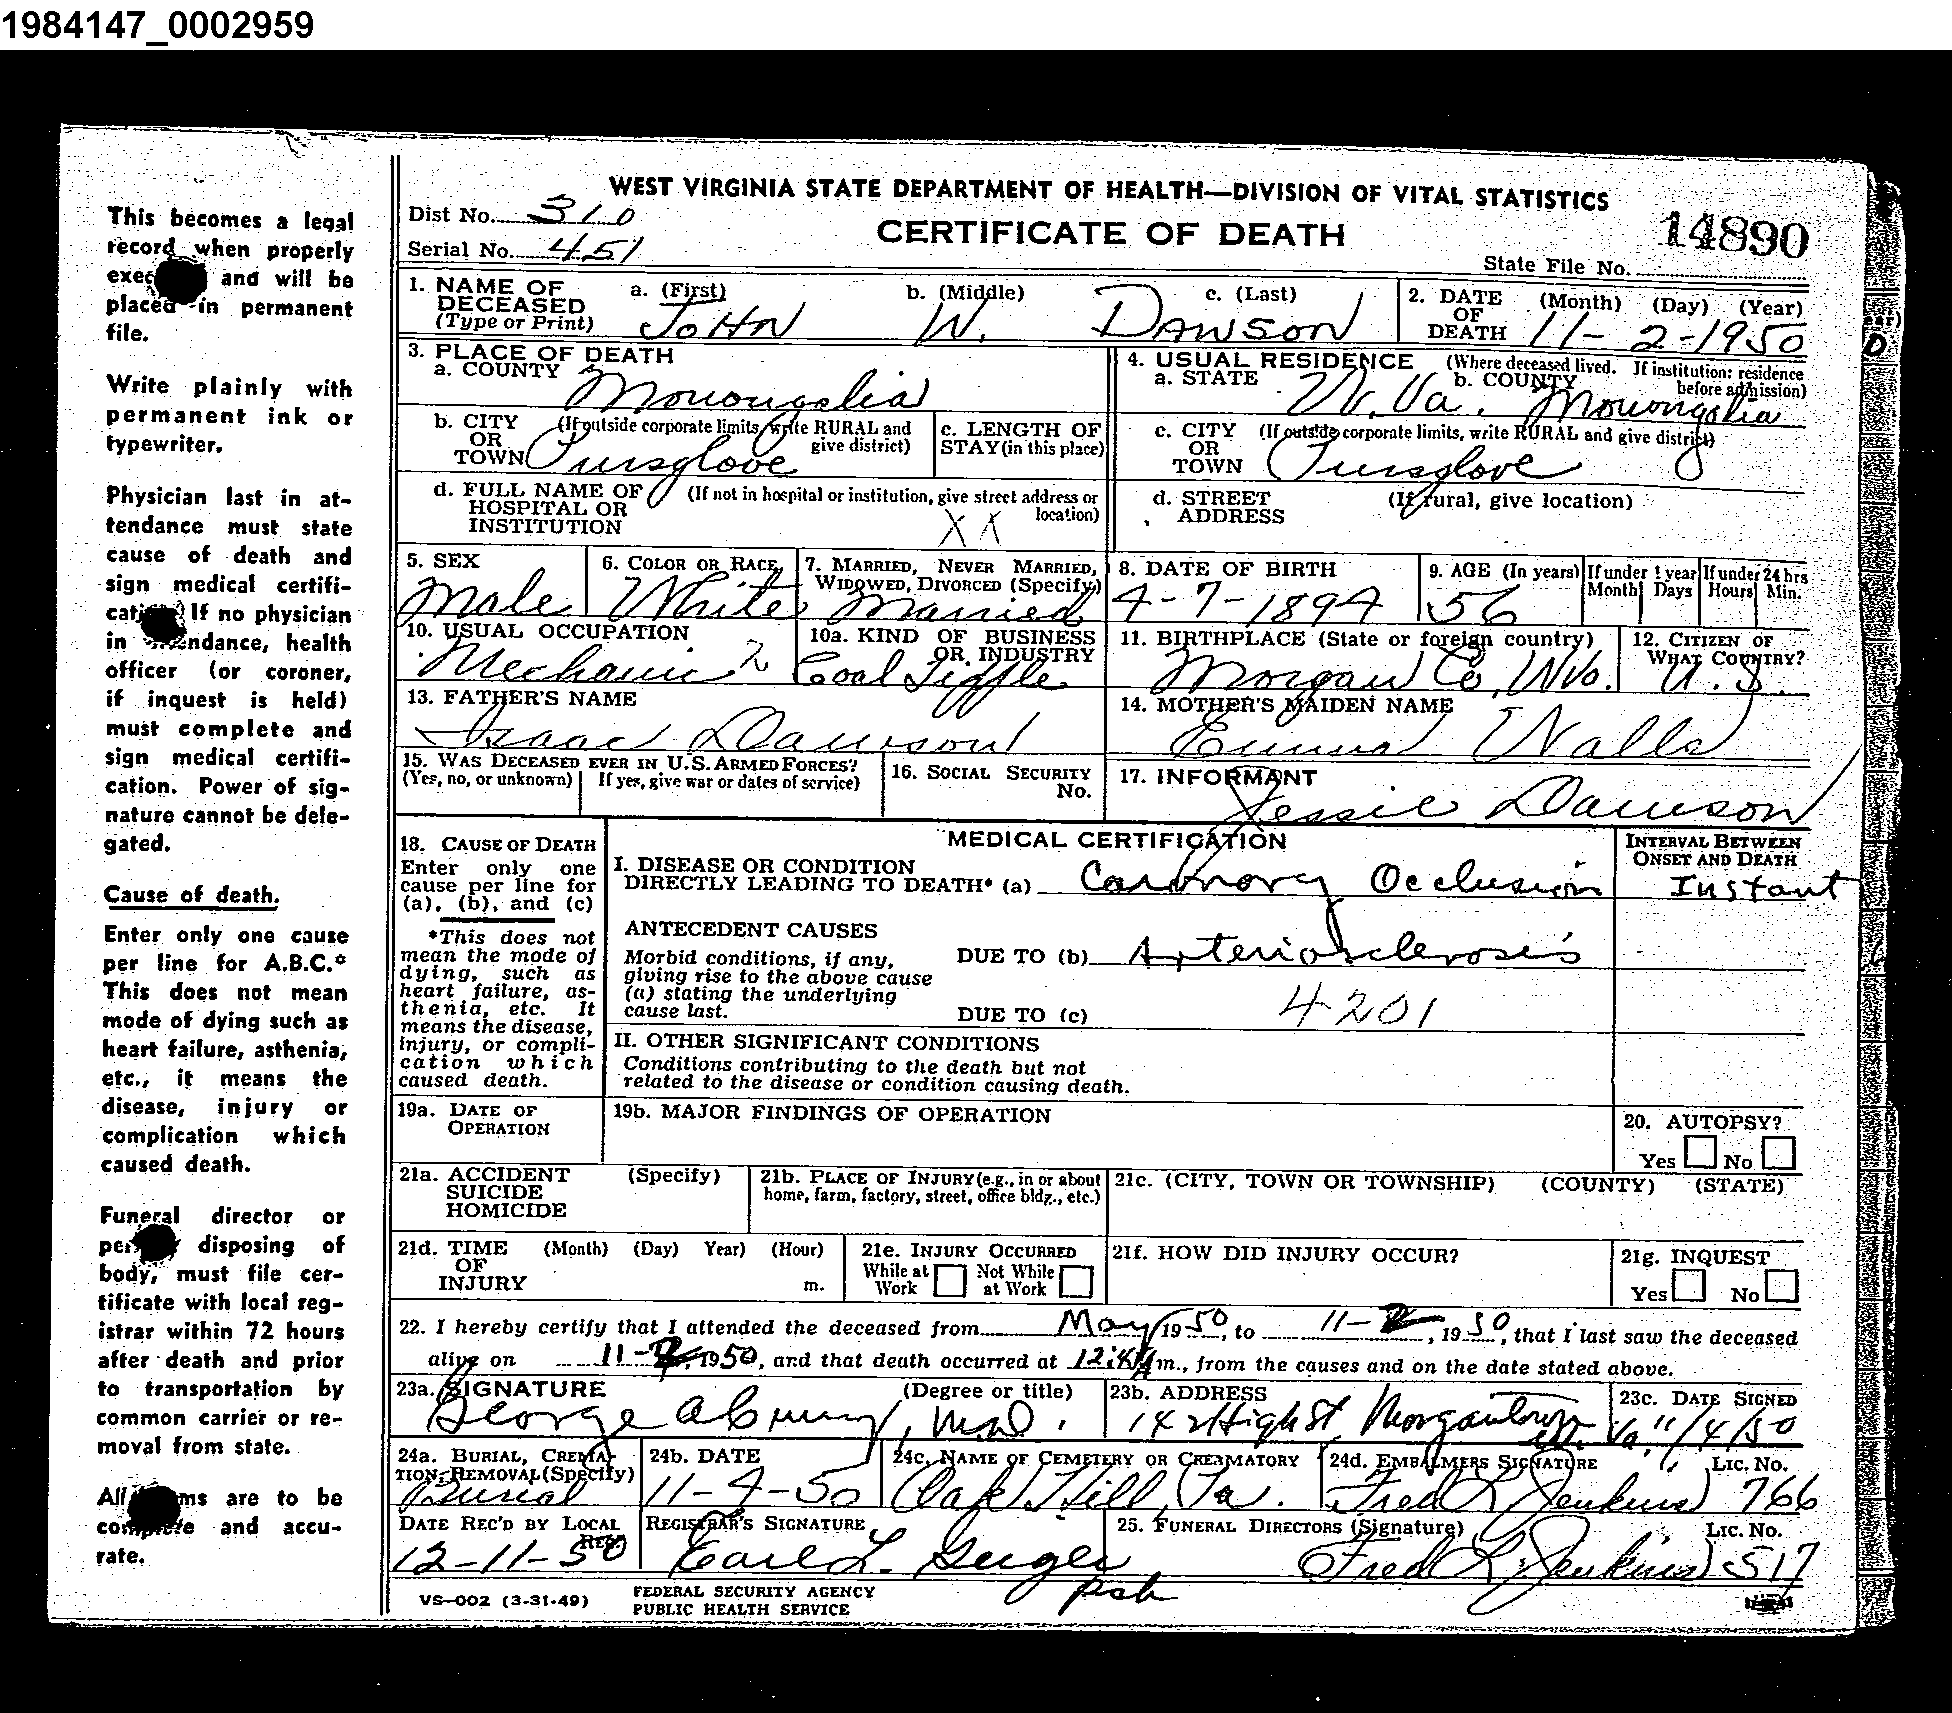 1984147_0002959
This becomes a legal
record when properly
and will be
placed in permanent
file.
Write plainly with
permanent ink or
typewriter.
Physician last in at-
tendance must state
cause of death and
sign medical certifi-
If no physician
in health
officer (or coroner,
if inquest is held)
must complete and
sign medical certifi-
cation. Power of sig-
nature cannot be dele-
gated.
Cause of death.
Enter only one cause
per line for A.B.C.*
This does not mean
mode of dying such as
heart failure, asthenia,
etc., it means the
disease, injury or
complication which
caused death.
Funeral director or
disposing of
body, must file cer-
tificate with local reg-
istrar within 72 hours
after death and prior
to transportation by
common carrier or re-
moval from state.
All are to be
complete and accu-
rate.
WEST VIRGINIA STATE DEPARTMENT OF HEALTH—DIVISION OF VITAL STATISTICS
Dist No. 310
CERTIFICATE OF DEATH
14890
Serial No. 451
State File No.
1. NAME OF DECEASED (Type or Print) a. (First) JOHN b. (Middle) W. c. (Last) DAWSON
2. DATE OF DEATH (Month) (Day) (Year) 11-2-1950
3. PLACE OF DEATH
a. COUNTY Monongalia
b. CITY OR TOWN (If outside corporate limits, write RURAL and give district) Pursglove
c. LENGTH OF STAY (in this place)
d. FULL NAME OF HOSPITAL OR INSTITUTION (If not in hospital or institution, give street address or location) XX
4. USUAL RESIDENCE (Where deceased lived. If institution: residence before admission)
a. STATE W. Va. b. COUNTY Monongalia
c. CITY OR TOWN (If outside corporate limits, write RURAL and give district) Pursglove
d. STREET ADDRESS (If rural, give location)
5. SEX Male
6. COLOR OR RACE White
7. MARRIED, NEVER MARRIED, WIDOWED, DIVORCED (Specify) Married
8. DATE OF BIRTH 4-7-1894
9. AGE (In years) 56 If under 1 year Month Days If under 24 hrs Hours Min.
10. USUAL OCCUPATION Mechanic 2
10a. KIND OF BUSINESS OR INDUSTRY Coal Tipple
11. BIRTHPLACE (State or foreign country) Morgan Co, WVa.
12. CITIZEN OF WHAT COUNTRY? U.S.
13. FATHER'S NAME Isaac Dawson
14. MOTHER'S MAIDEN NAME Emma Walls
15. WAS DECEASED EVER IN U.S. ARMED FORCES? (Yes, no, or unknown) If yes, give war or dates of service)
16. SOCIAL SECURITY No.
17. INFORMANT Jessie Dawson
18. CAUSE OF DEATH
Enter only one
cause per line for
(a), (b), and (c)
*This does not
mean the mode of
dying, such as
heart failure, as-
thenia, etc. It
means the disease,
injury, or compli-
cation which
caused death.
MEDICAL CERTIFICATION
INTERVAL BETWEEN ONSET AND DEATH
I. DISEASE OR CONDITION
DIRECTLY LEADING TO DEATH* (a) Coronary Occlusion Instant
ANTECEDENT CAUSES
Morbid conditions, if any,
giving rise to the above cause
(a) stating the underlying
cause last.
DUE TO (b) Arteriosclerosis
DUE TO (c) 4201
II. OTHER SIGNIFICANT CONDITIONS
Conditions contributing to the death but not
related to the disease or condition causing death.
19a. DATE OF OPERATION
19b. MAJOR FINDINGS OF OPERATION
20. AUTOPSY?
Yes No
21a. ACCIDENT SUICIDE HOMICIDE (Specify)
21b. PLACE OF INJURY (e.g., in or about home, farm, factory, street, office bldg., etc.)
21c. (CITY, TOWN OR TOWNSHIP) (COUNTY) (STATE)
21d. TIME OF INJURY (Month) (Day) Year) (Hour) m.
21e. INJURY OCCURRED While at Work Not While at Work
21f. HOW DID INJURY OCCUR?
21g. INQUEST
Yes No
22. I hereby certify that I attended the deceased from May 1950, to 11-2, 1950, that I last saw the deceased
alive on 11- 1950, and that death occurred at m., from the causes and on the date stated above.
23a. SIGNATURE (Degree or title) George M.D.
23b. ADDRESS High St Morgantown W. Va.
23c. DATE SIGNED 11/4/50
24a. BURIAL, CREMATION, REMOVAL (Specify) Burial
24b. DATE 11-4-50
24c. NAME OF CEMETERY OR CREMATORY Oak Hill, Pa.
24d. EMBALMERS SIGNATURE Lic. No. Fred L. Jenkins 766
DATE REC'D BY LOCAL REG. 12-11-50
REGISTRAR'S SIGNATURE Earl L. psh
25. FUNERAL DIRECTORS (Signature) LIC. No. Fred L. Jenkins 517
VS-002 (3-31-49)
FEDERAL SECURITY AGENCY
PUBLIC HEALTH SERVICE